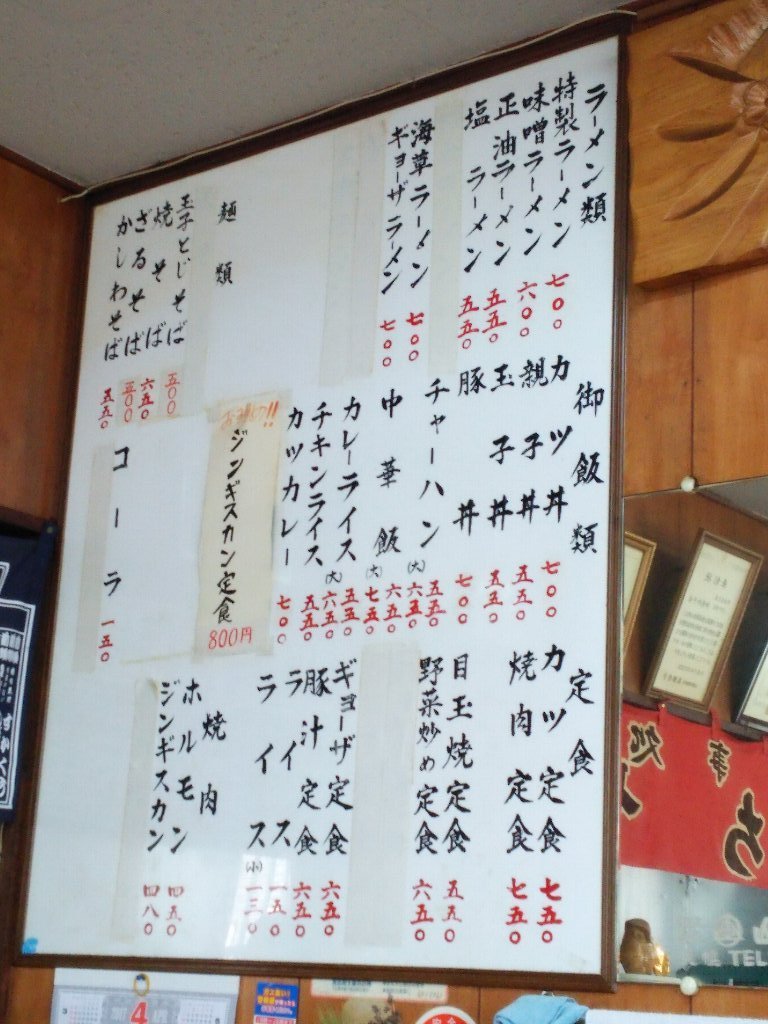 ラーメン類
特製ラーメン 七〇〇
味噌ラーメン 六〇〇
正油ラーメン 五五〇
塩ラーメン 五五〇
海草ラーメン 七〇〇
ギョーザラーメン 七〇〇
麺類
玉子とじそば 五〇〇
焼そば 六五〇
ざるそば 五〇〇
かしわそば 五五〇
御飯類
カツ丼 七〇〇
親子丼 五五〇
玉子丼 五五〇
豚丼 七〇〇
チャーハン 五五〇
(大) 六五〇
中華飯 六五〇
(大) 七五〇
カレーライス 五五〇
(大) 六五〇
チキンライス 五五〇
カツカレー 七〇〇
ジンギスカン定食
800円
コーラ 一五〇
定食
カツ定食 七五〇
焼肉定食 七五〇
目玉焼定食 五五〇
野菜炒め定食 六五〇
ギョーザ定食 六五〇
豚汁定食 六五〇
ライス 一五〇
ライス(小) 一三〇
焼肉
ホルモン 四五〇
ジンギスカン 四八〇
4
TEL